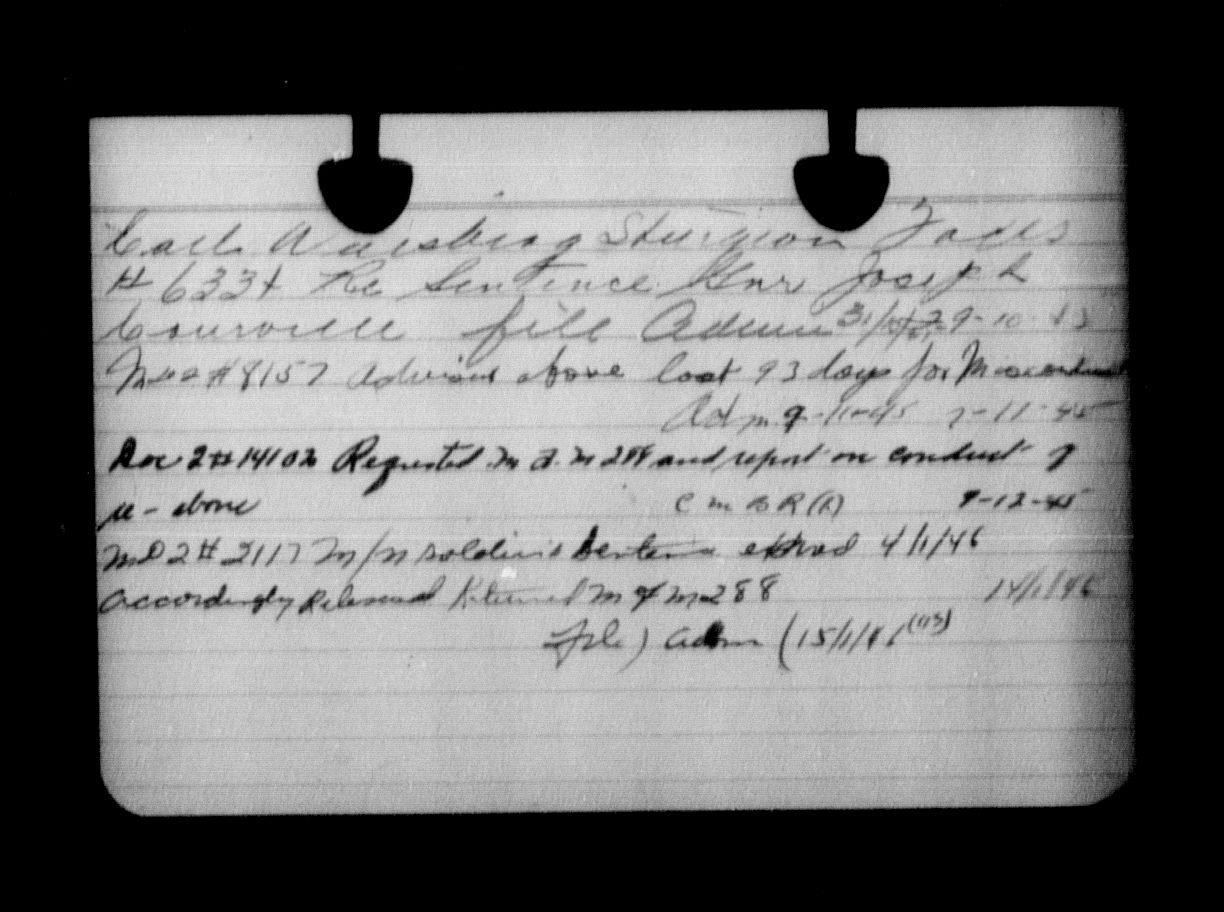 Sturgeon Falls
# 6334 Re Sentence Gnr Joseph
Courville file Admin 31/10/ 29-10-45
#8157 Advises above lost 93 days for Misconduct
Adm 9-11-45 7-11-45
Doc 2 #14102 Requested M.F.M 288 and report on conduct of
m - above C M B R (A) 9-12-45
MD 2 # 2117 m/n soldiers Sentence expired 4/1/46
accordingly Released M F M 288 14/1/46
File) Adm (15/1/46 (113)